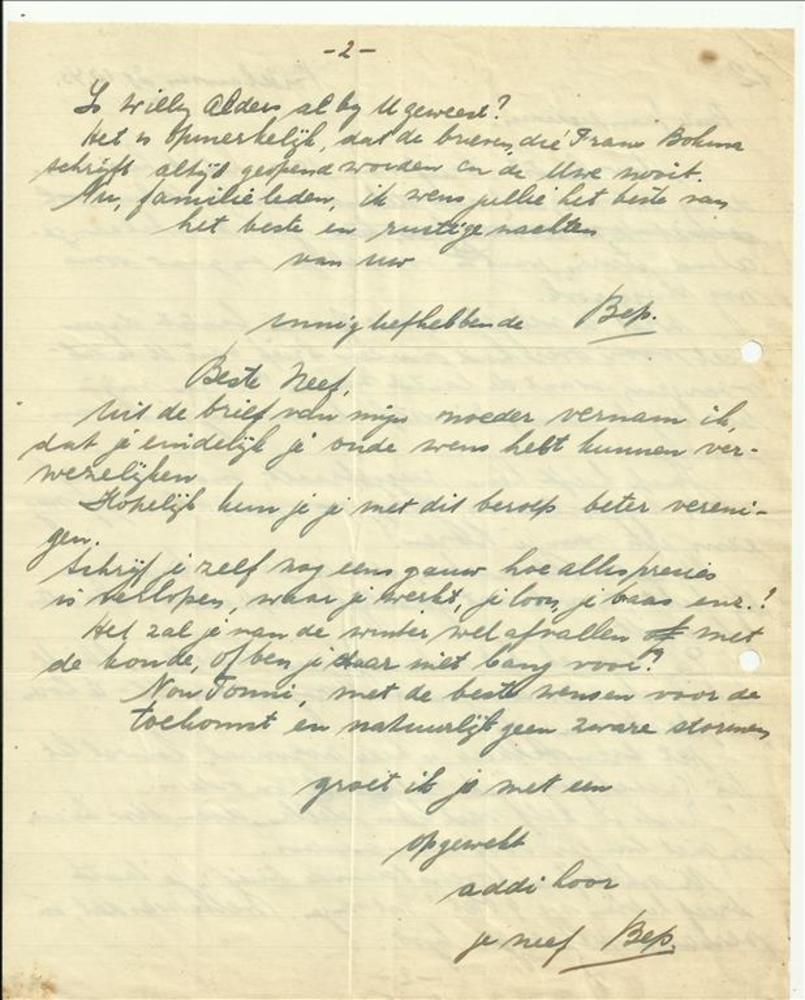 -2-
Is Willy Alders al by U geweest?
Het is opmerkelijk, dat de brieven, die Frans Bohma
schrijft altijd geopend worden en de Uwe nooit.
Nu, familieleden, ik wens jullie het beste van
het beste en rustige nachten
van uw
innig liefhebbende Bep.
Beste Neef,
Uit de brief van mijn moeder vernam ik,
dat je eindelijk je oude wens hebt kunnen ver-
wezelijken
Hopelijk kun je je met dit beroep beter vereni-
gen.
Schrijf je zelf nog eens gauw hoe alles precies
is verlopen, waar je werkt, je loon, je baas enz.!
Het zal je van de winter wel afvallen met
de koude, of ben je daar niet bang voor?
Nou Tonni, met de beste wensen voor de
toekomst en natuurlijk geen zware stormen
groet ik je met een
opgewekt
addi hoor
je neef Bep.